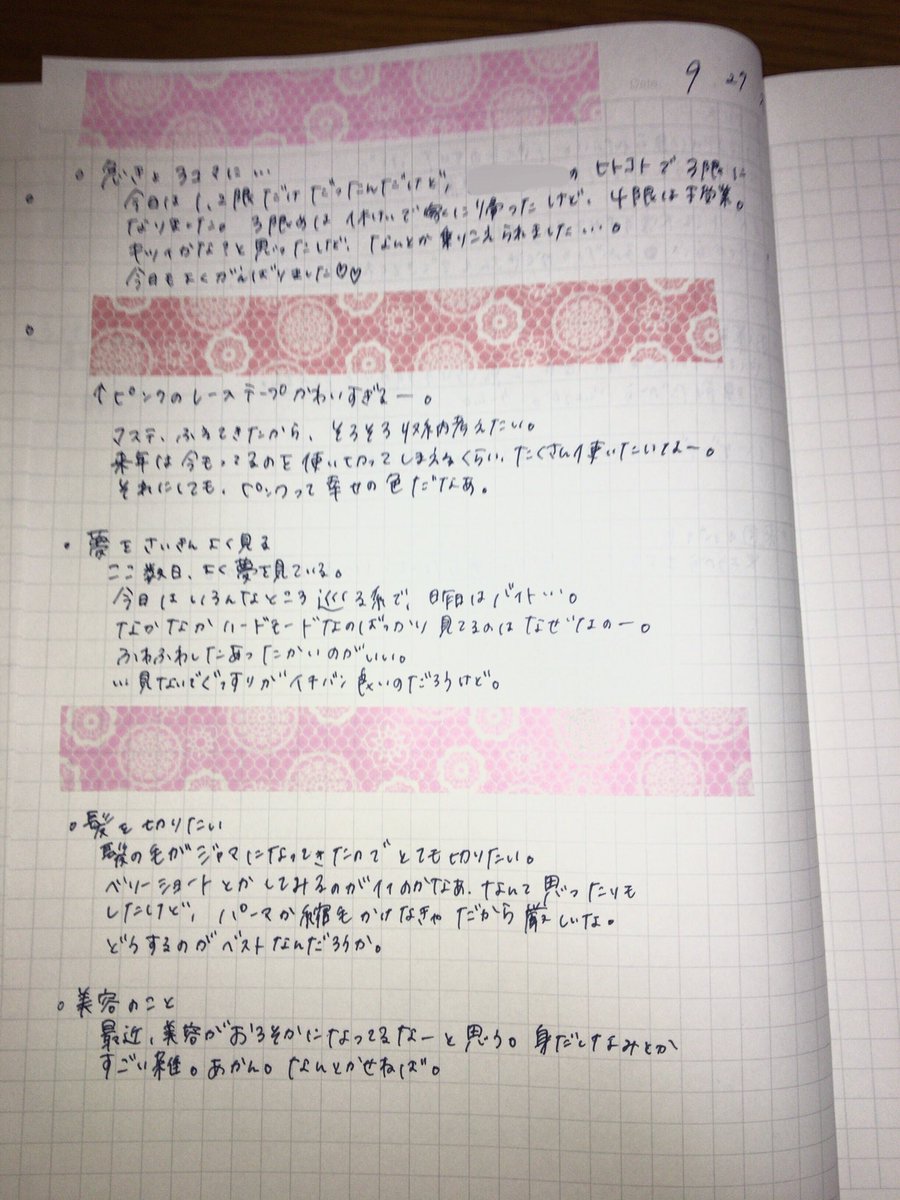 Date 9 27
急きょ3コマに…
今日は1、2限だけだったんだけど、 のヒトコトで3限に
なりました。3限めは休けいで家に帰ったけど、4限は授業。
キツイかな?と思ったけど、なんとか乗りこえられました…。
今日もよくがんばりました♡♡
↑ピンクのレーステープかわいすぎるー。
マステ、ふえてきたから、そろそろ収納考えたい。
来年は今もってるのを使い切ってしまえるくらい、たくさん使いたいなー。
それにしても、ピンクって幸せの色だなあ。
・夢をさいきんよく見る
ここ数日、よく夢を見ている。
今日はいろんなところ巡る系で、昨日はバイト…。
なかなかハードモードなのばっかり見てるのはなぜなのー。
ふわふわしたあったかいのがいい。
…見ないでぐっすりがイチバン良いのだろうけど。
○髪を切りたい
髪の毛がジャマになってきたのでとても切りたい。
ベリーショートとかしてみるのがイイのかなあ、なんて思ったりも
したけど、パーマか縮毛かけなきゃだから厳しいな。
どうするのがベストなんだろうか。
○美容のこと
最近、美容がおろそかになってるなーと思う。身だしなみとか
すごい雑。あかん。なんとかせねば。